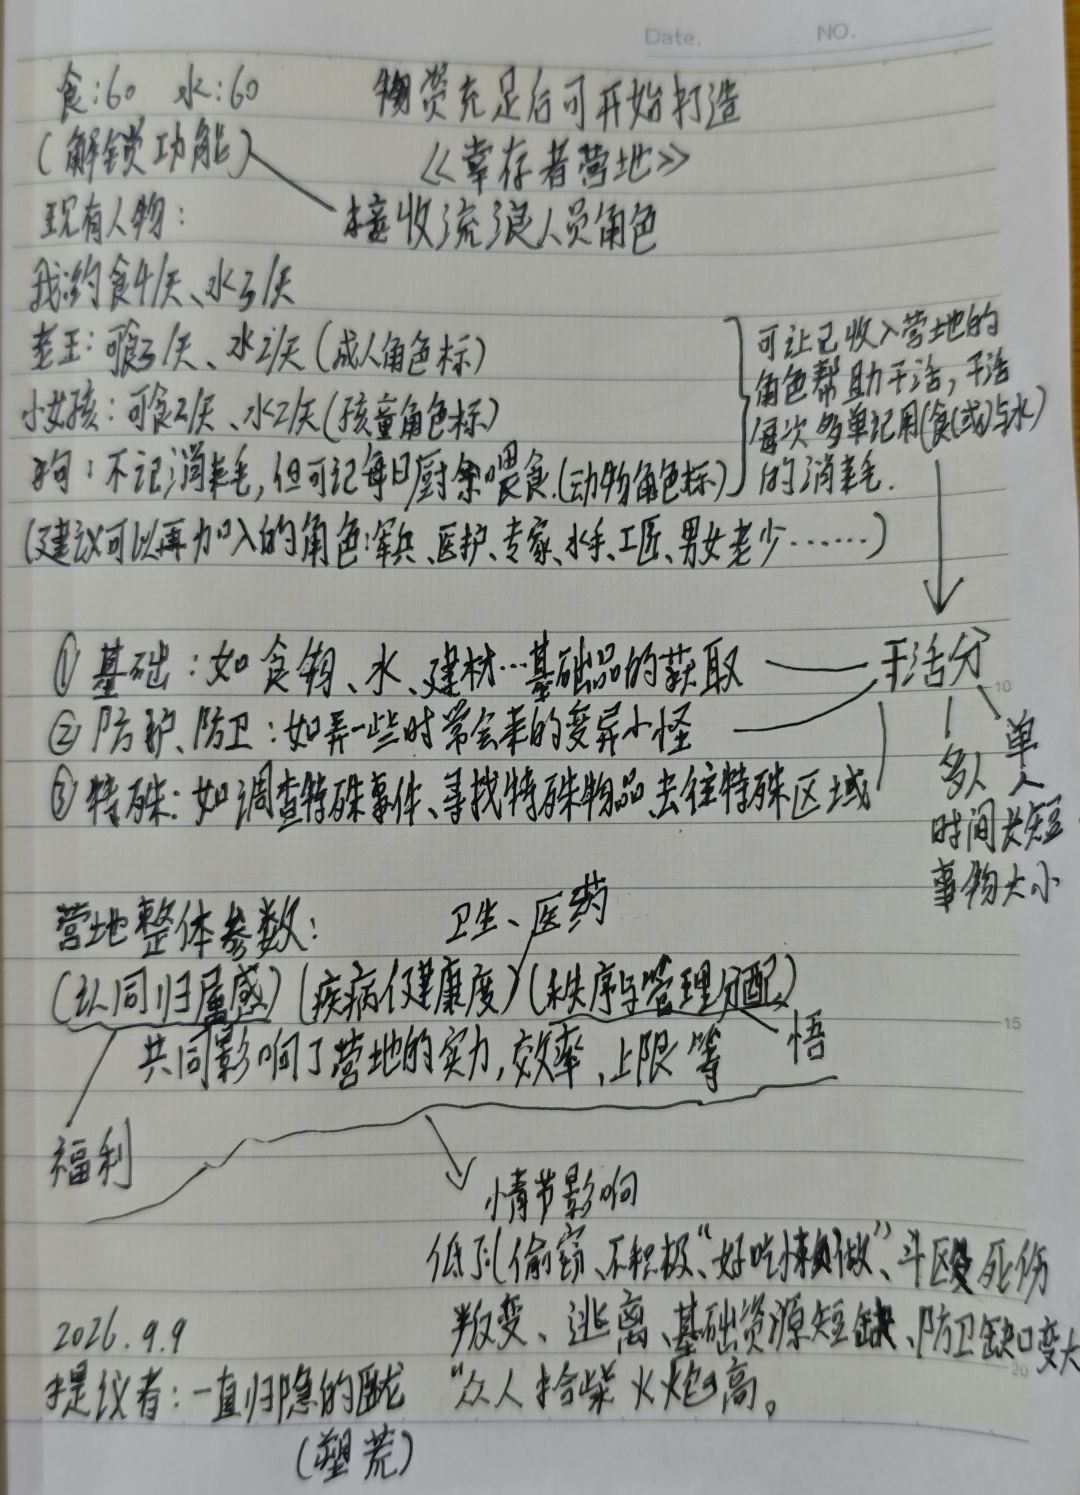 Date. NO.
食:60 水:60 物资充足后可开始打造
(解锁功能) 《幸存者营地》
现有人物: 接收流浪人员角色
我:约食4/天、水3/天
老王:可食3/天、水2/天(成人角色标)
小女孩:可食2/天、水2/天(孩童角色标)
狗:不记消耗,但可记每日厨余喂食.(动物角色标)
可让已收入营地的
角色帮助干活,干活
每次多单记用(食(或)与水)
的消耗.
(建议可以再加入的角色:军兵、医护、专家、水手、工匠、男女老少……)
①基础:如食物、水、建材…基础品的获取
干活分
②防护、防卫:如弄一些时常会来的变异小怪
③特殊:如调查特殊事件、寻找特殊物品、去往特殊区域
多人 单人
时间长短
事物大小
10
营地整体参数: 卫生、医药
(认同归属感)(疾病健康度)(秩序与管理分配)
15
共同影响了营地的实力,效率,上限等 悟
福利
情节影响
低了(偷窃、不积极、"好吃懒做"、斗殴死伤
2026.9.9 叛变、逃离、基础资源短缺、防卫缺口变大
20
提议者:一直归隐的 "众人拾柴火焰高。
(塑荒)